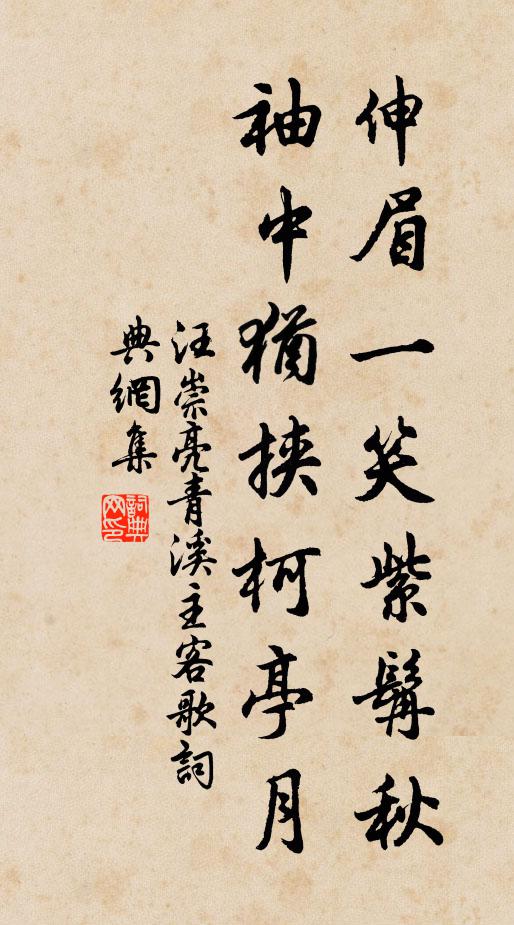 伸眉一笑紫髯秋
袖中猶挾柯亭月
汪崇亮青溪主客歌詞
典網集
詞典網印